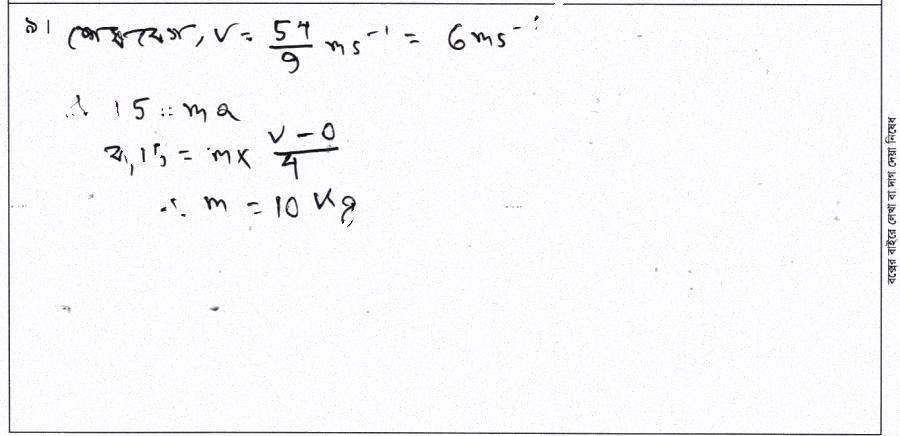 ৯। শেষবেগ, v = 54/9 ms⁻¹ = 6ms⁻¹
∴ 15 = ma
বা, 15 = m× (v - 0)/4
∴ m = 10 kg
বক্সের বাইরে লেখা বা দাগ দেয়া নিষেধ